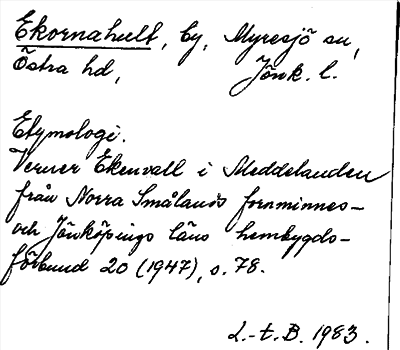 Ekornahult, by, Myresjö sn,
Östra hd, Jönk. l.
Etymologi.
Verner Ekenvall i Meddelanden
från Norra Smålands fornminnes-
och Jönköpings läns hembygds-
förbund 20 (1947), s. 78.
L.-t. B. 1983.